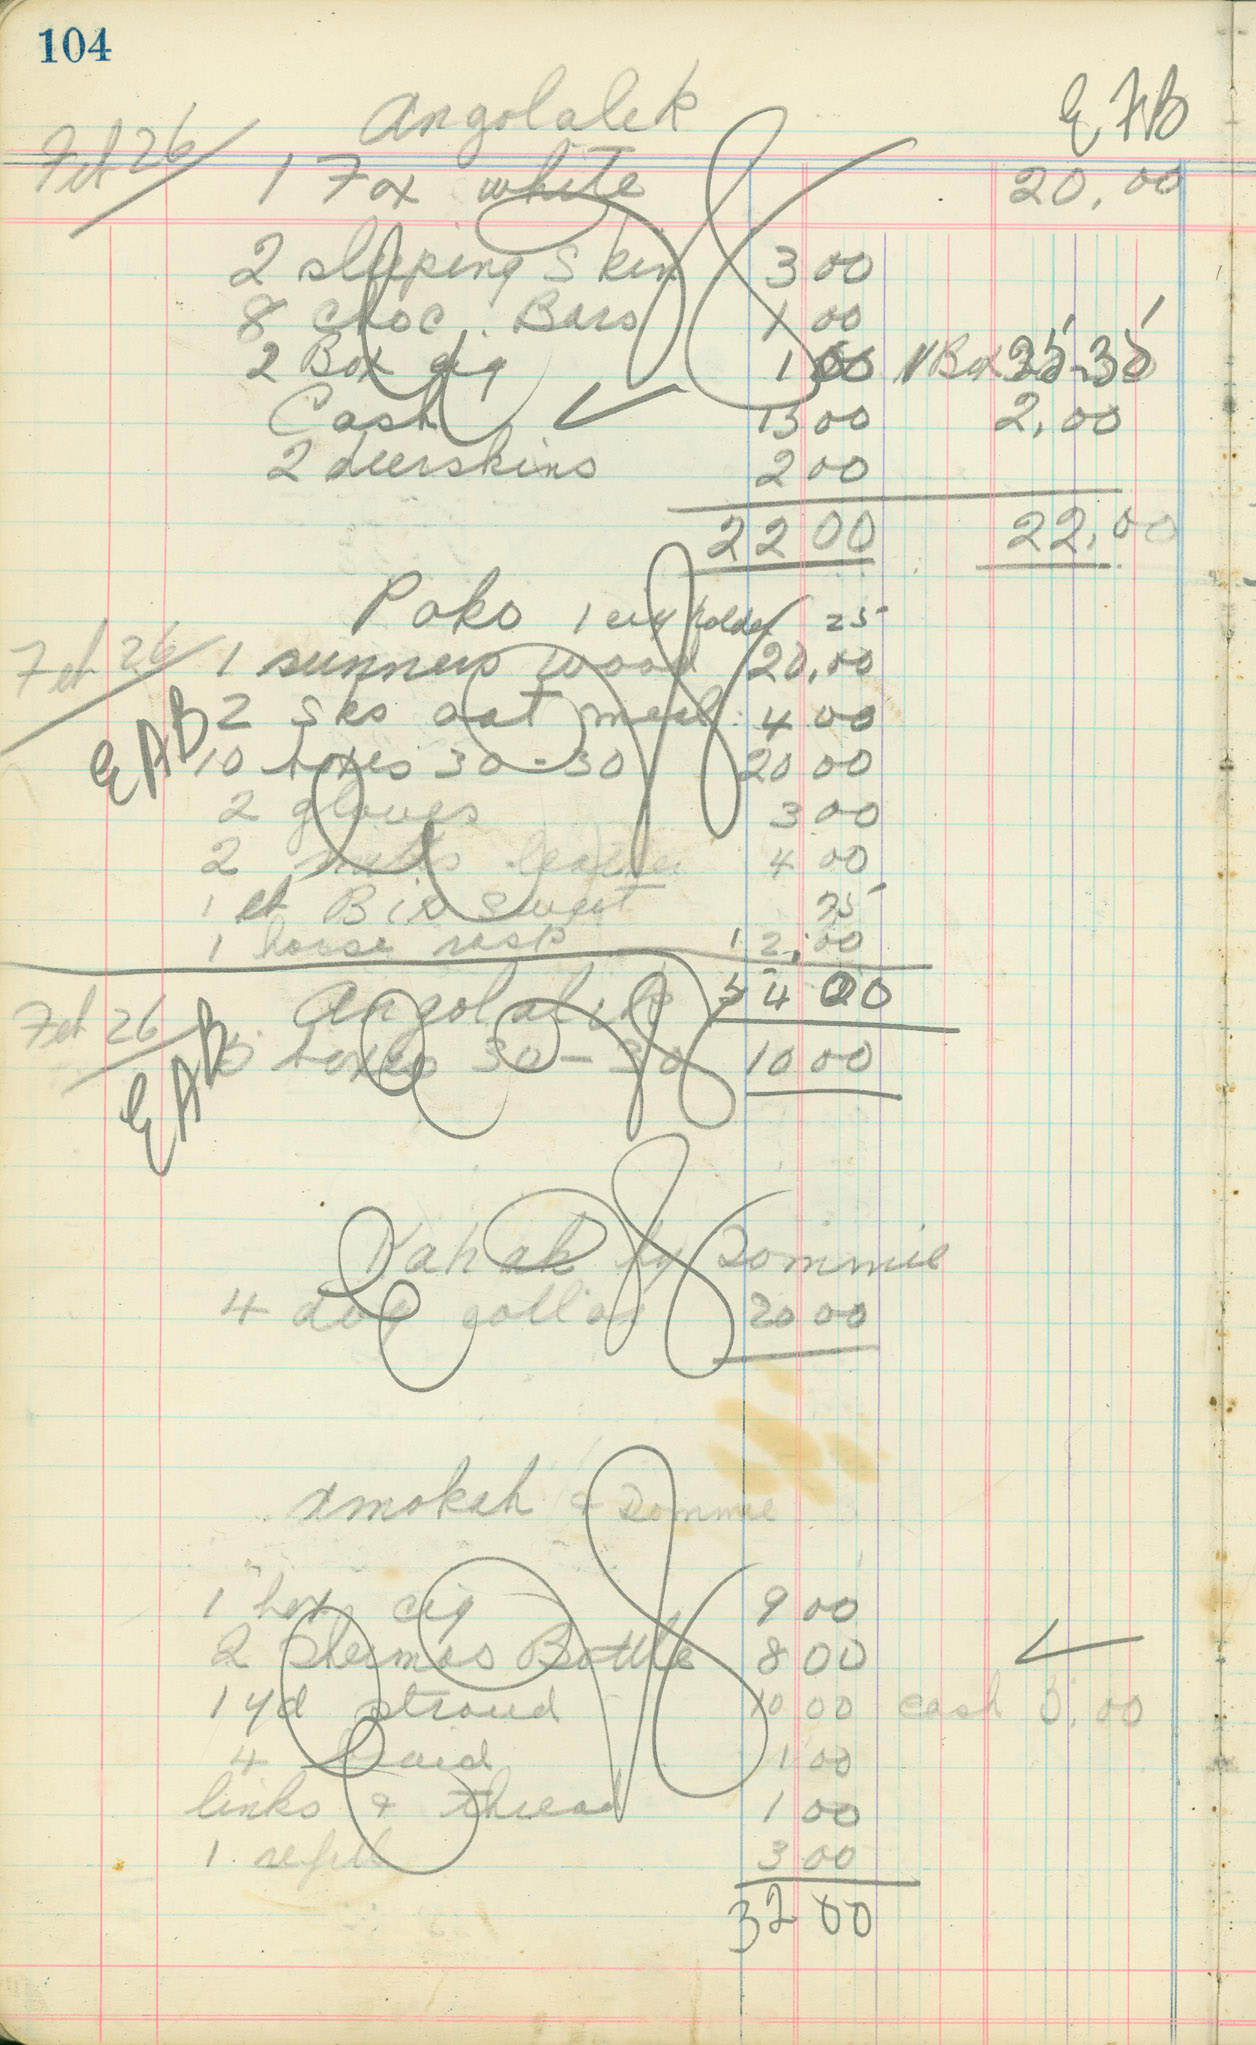 104
Angolalek EAB
Feb 26 1 Fox white 20.00
2 sleping skin 3 00
8 choc. Bars 1 00
2 Box cig 1 00 1 Box 30-30
Cash 13 00 2.00
2 deerskins 2 00
22 00 22.00
Poko 1 cig holder 25
Feb 26 1 runners wood 20.00
EAB 2 sks oat meal 4 00
10 boxes 30-30 20 00
2 gloves 3 00
2 mitts leather 4 00
1 Bis sweet 25
1 horse rasp 2.00
54 00
Feb 26 Angolalik
EAB 5 boxes 30-30 10 00
Kapak by Tommie
4 dog collar 20 00
Amokah & Tommie
1 box cig 9 00
2 Thermos Bottle 8 00
1 yd stroud 10 00 cash 5.00
4 braid 1 00
links & thread 1 00
1 refill 3 00
32 00